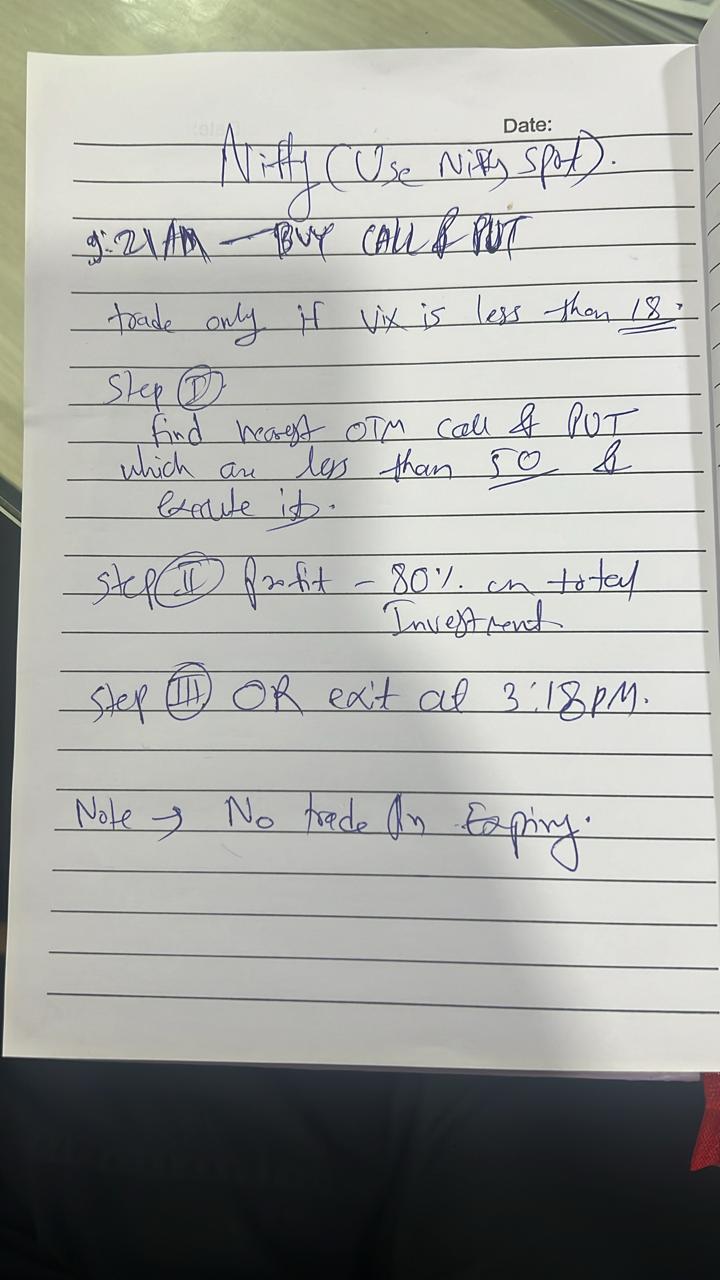 Date:
Nifty (Use Nifty Spot).
9:21AM — BUY CALL & PUT
trade only if Vix is less than 18.
Step I
find nearest OTM Call & PUT
which are less than 50 &
Execute it.
Step II Profit - 80% on total
Investment
Step III OR exit at 3:18PM.
Note → No trade On Expiry.